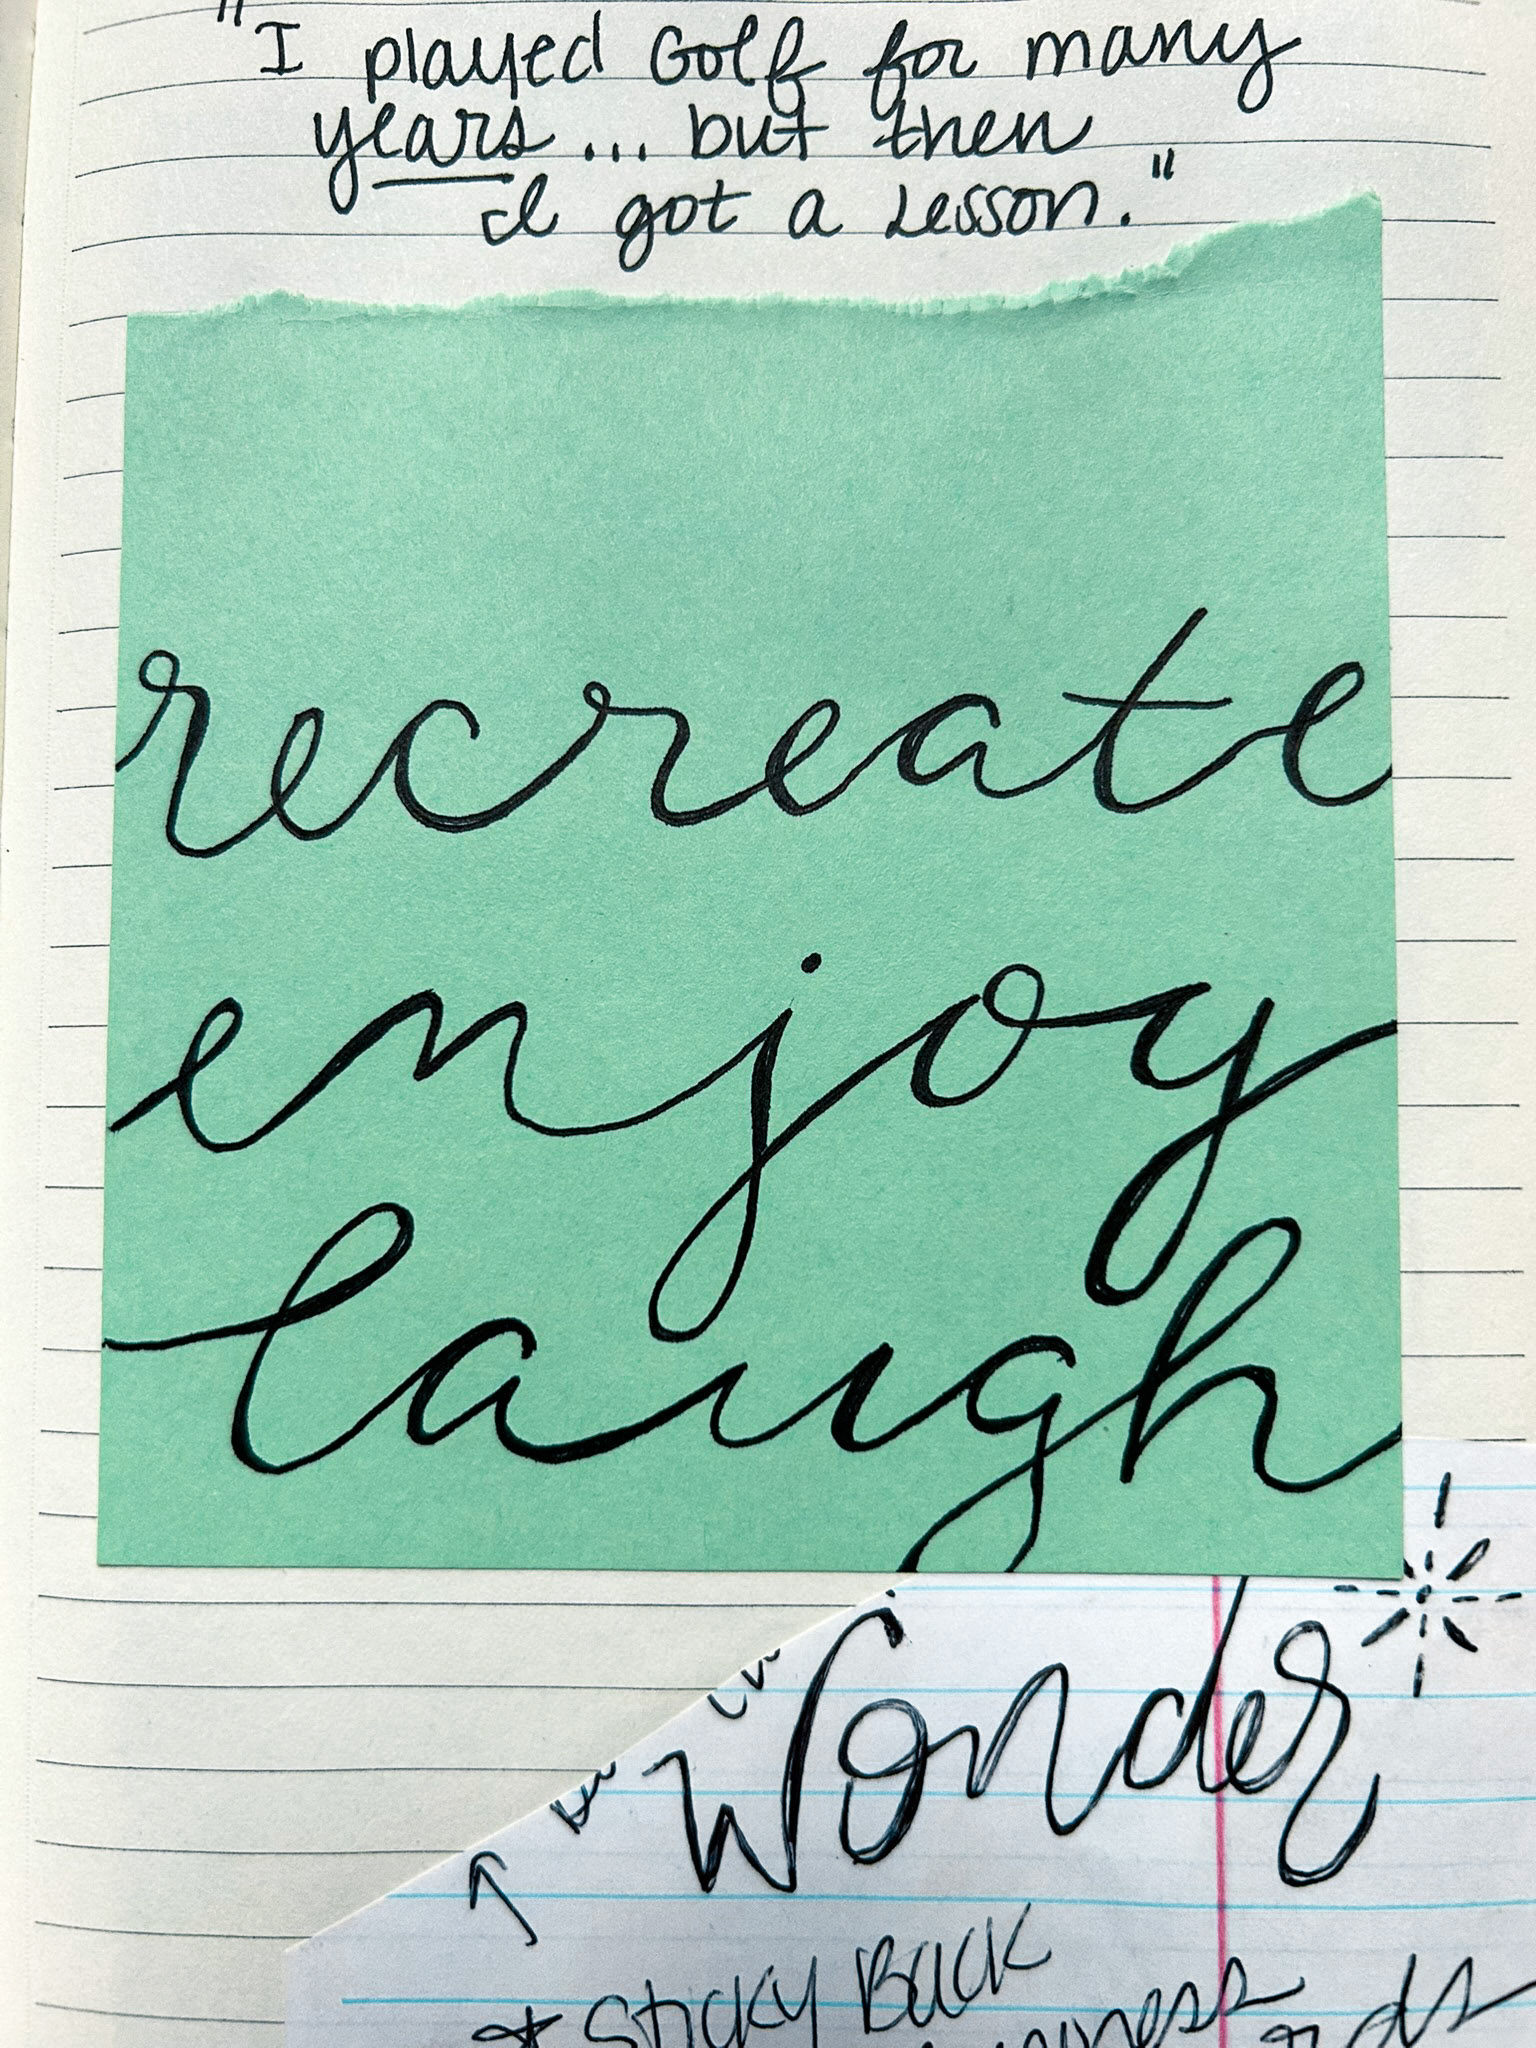 "I played Golf for many
years... but then
I got a Lesson."
recreate
enjoy
laugh
Wonder
* Sticky Back